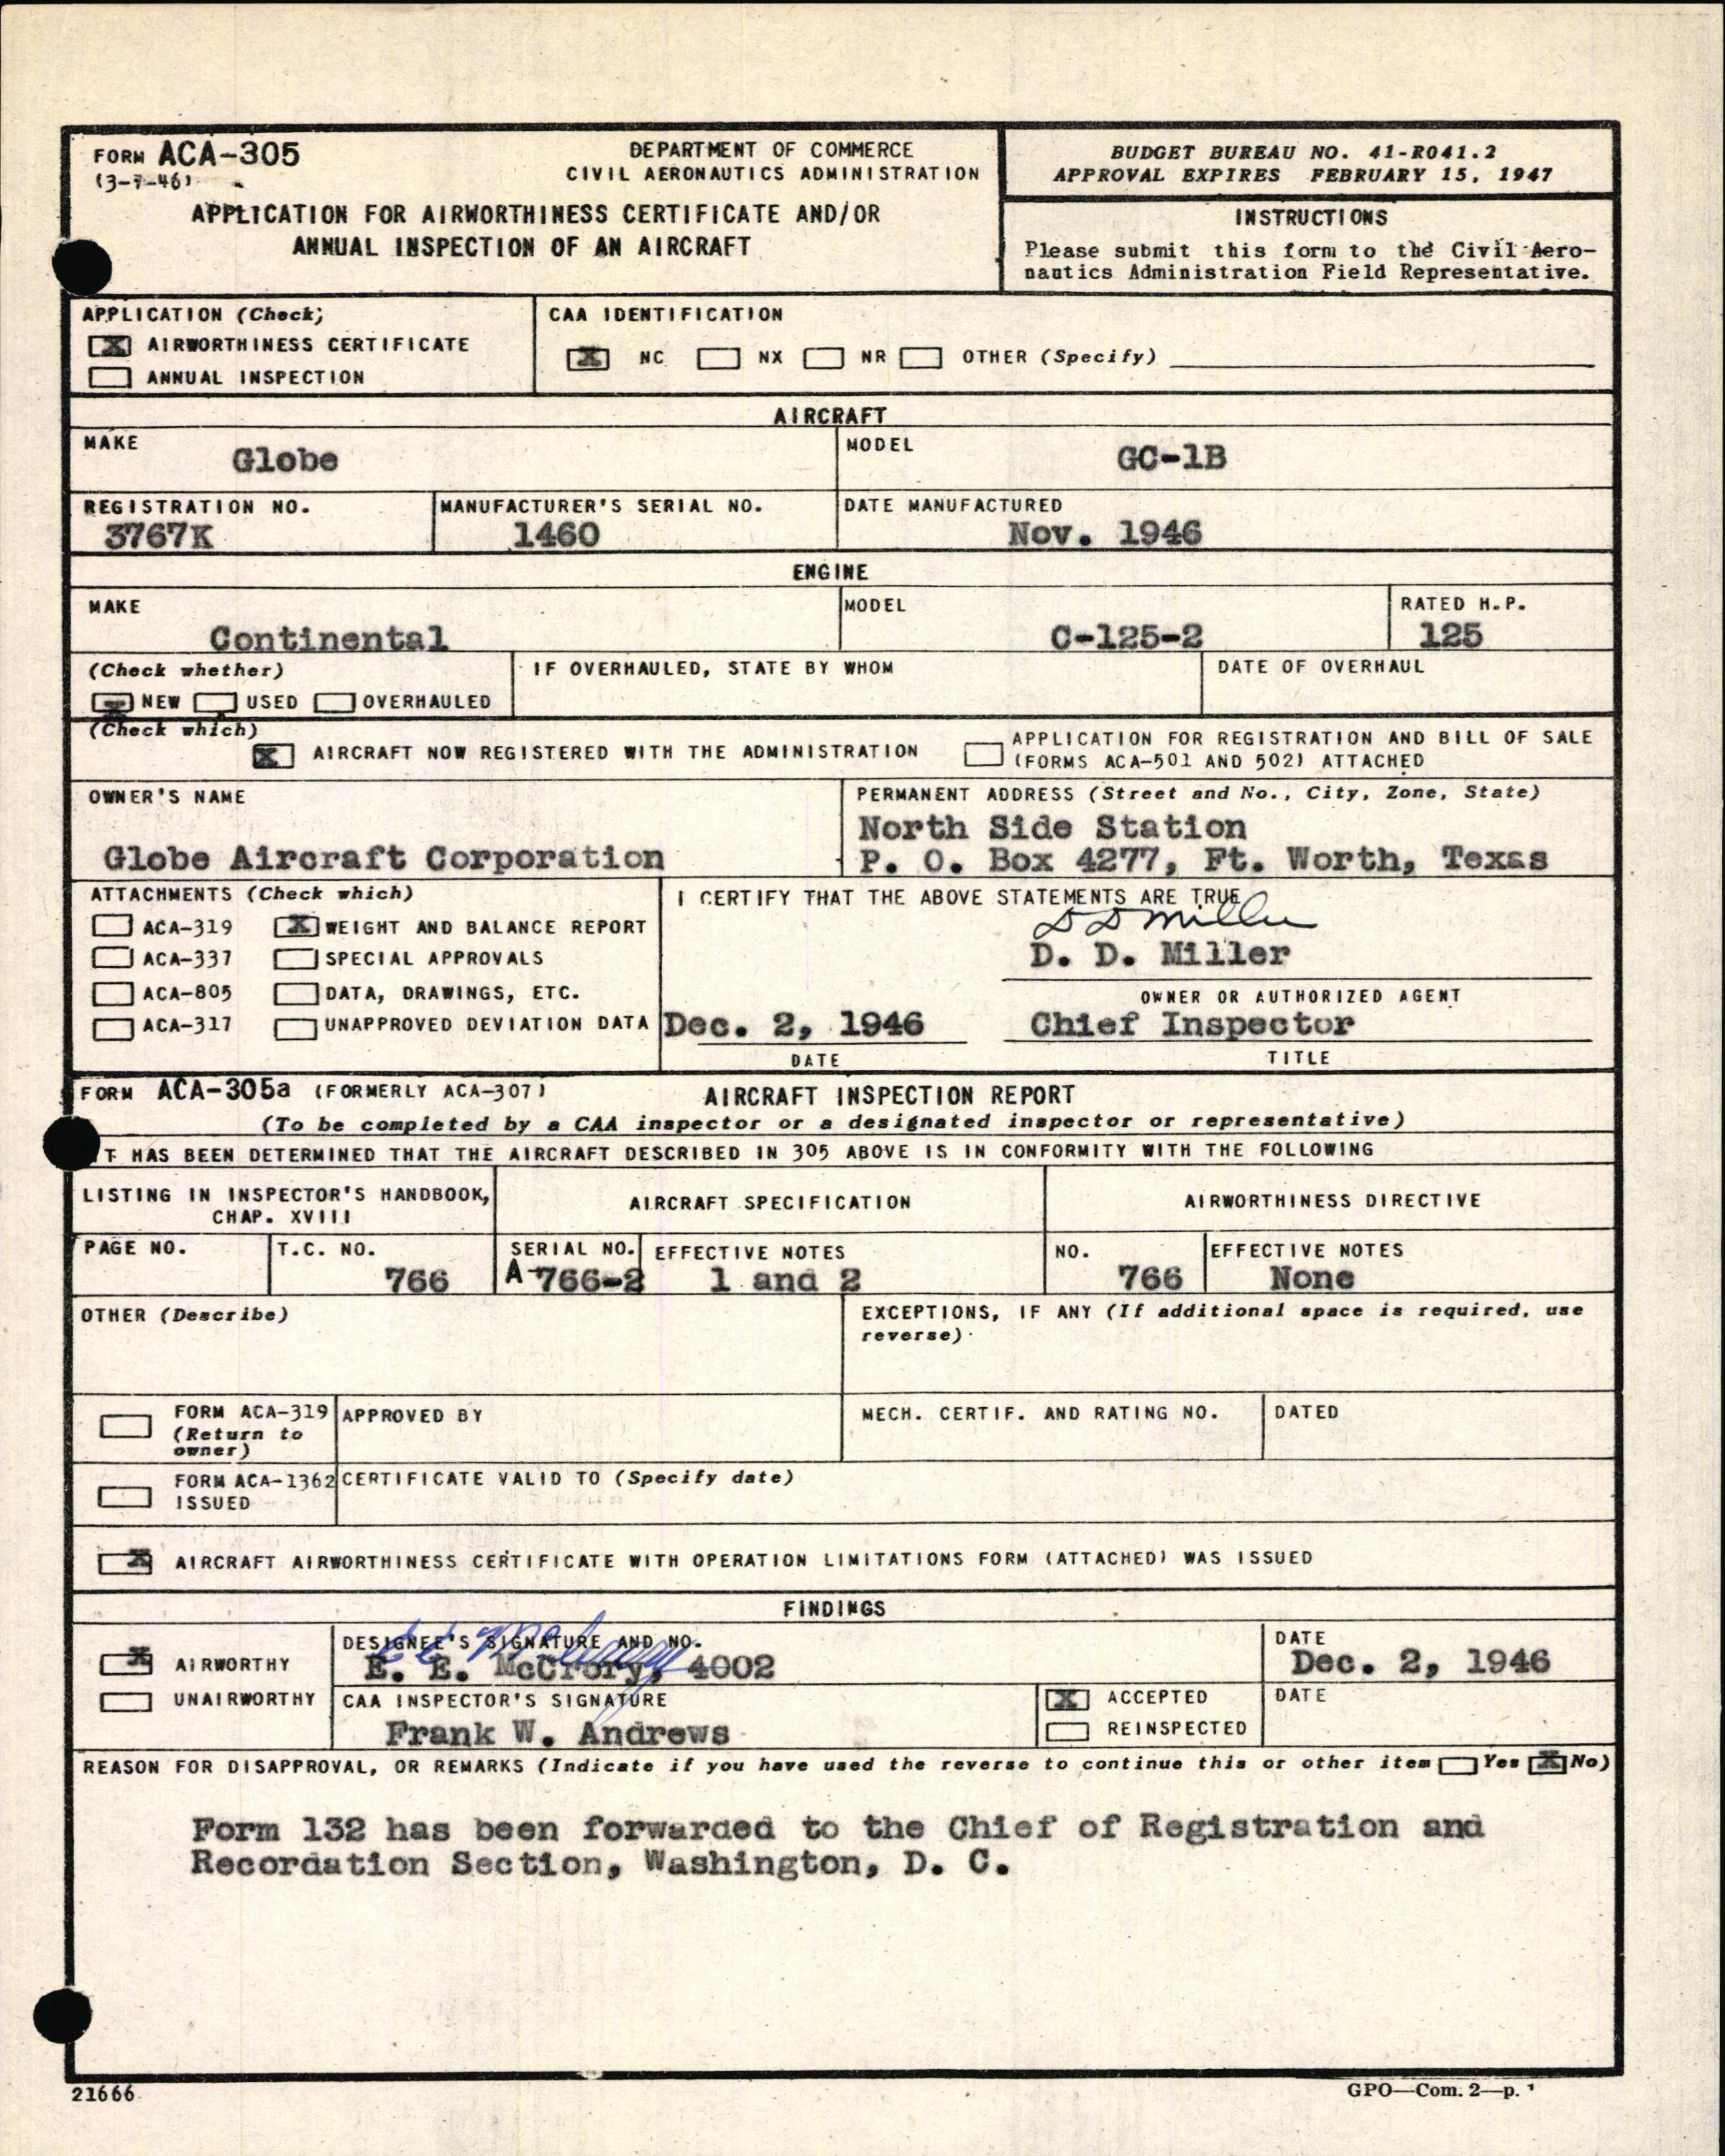 FORM ACA-305
(3-7-46)
DEPARTMENT OF COMMERCE
CIVIL AERONAUTICS ADMINISTRATION
APPLICATION FOR AIRWORTHINESS CERTIFICATE AND/OR
ANNUAL INSPECTION OF AN AIRCRAFT
BUDGET BUREAU NO. 41-R041.2
APPROVAL EXPIRES FEBRUARY 15, 1947
INSTRUCTIONS
Please submit this form to the Civil Aero-
nautics Administration Field Representative.
APPLICATION (Check)
X AIRWORTHINESS CERTIFICATE
ANNUAL INSPECTION
CAA IDENTIFICATION
X NC NX NR OTHER (Specify)
AIRCRAFT
MAKE
Globe
MODEL
GC-1B
REGISTRATION NO.
3767K
MANUFACTURER'S SERIAL NO.
1460
DATE MANUFACTURED
Nov. 1946
ENGINE
MAKE
Continental
MODEL
C-125-2
RATED H.P.
125
(Check whether)
X NEW USED OVERHAULED
IF OVERHAULED, STATE BY WHOM
DATE OF OVERHAUL
(Check which)
X AIRCRAFT NOW REGISTERED WITH THE ADMINISTRATION
APPLICATION FOR REGISTRATION AND BILL OF SALE
(FORMS ACA-501 AND 502) ATTACHED
OWNER'S NAME
Globe Aircraft Corporation
PERMANENT ADDRESS (Street and No., City, Zone, State)
North Side Station
P. O. Box 4277, Ft. Worth, Texas
ATTACHMENTS (Check which)
ACA-319 X WEIGHT AND BALANCE REPORT
ACA-337 SPECIAL APPROVALS
ACA-805 DATA, DRAWINGS, ETC.
ACA-317 UNAPPROVED DEVIATION DATA
I CERTIFY THAT THE ABOVE STATEMENTS ARE TRUE
D D Miller
D. D. Miller
OWNER OR AUTHORIZED AGENT
Dec. 2, 1946 Chief Inspector
DATE TITLE
FORM ACA-305a (FORMERLY ACA-307) AIRCRAFT INSPECTION REPORT
(To be completed by a CAA inspector or a designated inspector or representative)
T HAS BEEN DETERMINED THAT THE AIRCRAFT DESCRIBED IN 305 ABOVE IS IN CONFORMITY WITH THE FOLLOWING
LISTING IN INSPECTOR'S HANDBOOK,
CHAP. XVIII
AIRCRAFT SPECIFICATION
AIRWORTHINESS DIRECTIVE
PAGE NO.
T.C. NO.
766
SERIAL NO.
A-766-2
EFFECTIVE NOTES
1 and 2
NO.
766
EFFECTIVE NOTES
None
OTHER (Describe)
EXCEPTIONS, IF ANY (If additional space is required, use
reverse)
FORM ACA-319
(Return to
owner)
APPROVED BY
MECH. CERTIF. AND RATING NO.
DATED
FORM ACA-1362
ISSUED
CERTIFICATE VALID TO (Specify date)
X AIRCRAFT AIRWORTHINESS CERTIFICATE WITH OPERATION LIMITATIONS FORM (ATTACHED) WAS ISSUED
FINDINGS
X AIRWORTHY
UNAIRWORTHY
DESIGNEE'S SIGNATURE AND NO.
E E McCrory
E. E. McCrory, 4002
DATE
Dec. 2, 1946
CAA INSPECTOR'S SIGNATURE
Frank W. Andrews
X ACCEPTED
REINSPECTED
DATE
REASON FOR DISAPPROVAL, OR REMARKS (Indicate if you have used the reverse to continue this or other item Yes X No)
Form 132 has been forwarded to the Chief of Registration and
Recordation Section, Washington, D. C.
21666
GPO—Com. 2—p. 1